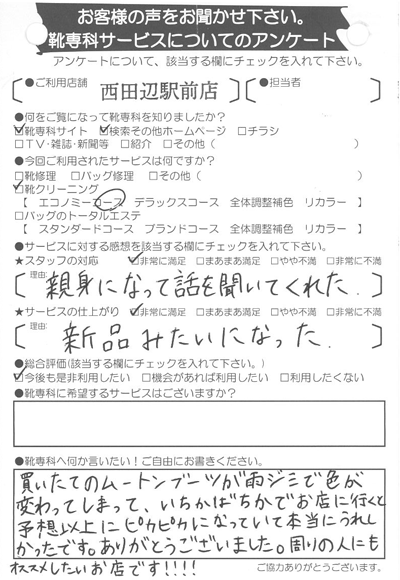 お客様の声をお聞かせ下さい。
靴専科サービスについてのアンケート
アンケートについて、該当する欄にチェックを入れて下さい。
●ご利用店舗 西田辺駅前店 ●担当者
●何をご覧になって靴専科を知りましたか？
☑靴専科サイト ☑検索その他ホームページ □チラシ
□TV・雑誌・新聞等 □紹介 □その他（ ）
●今回ご利用されたサービスは何ですか？
□靴修理 □バッグ修理 □その他（ ）
☑靴クリーニング
【 エコノミーコース デラックスコース 全体調整補色 リカラー 】
□バッグのトータルエステ
【 スタンダードコース ブランドコース 全体調整補色 リカラー 】
●サービスに対する感想を該当する欄にチェックを入れて下さい。
★スタッフの対応 ☑非常に満足 □まあまあ満足 □やや不満 □非常に不満
理由: 親身になって話を聞いてくれた.
★サービスの仕上がり ☑非常に満足 □まあまあ満足 □やや不満 □非常に不満
理由: 新品みたいになった.
●総合評価(該当する欄にチェックを入れて下さい。)
☑今後も是非利用したい □機会があれば利用したい □利用したくない
●靴専科に希望するサービスはございますか？
●靴専科へ何か言いたい！ご自由にお書きください。
買いたてのムートンブーツが雨ジミで色が
変わってしまって、いちかばちかでお店に行くと
予想以上にピカピカになっていて本当にうれし
かったです。ありがとうございました。周りの人にも
オススメしたいお店です!!!!
ご協力ありがとうございます。